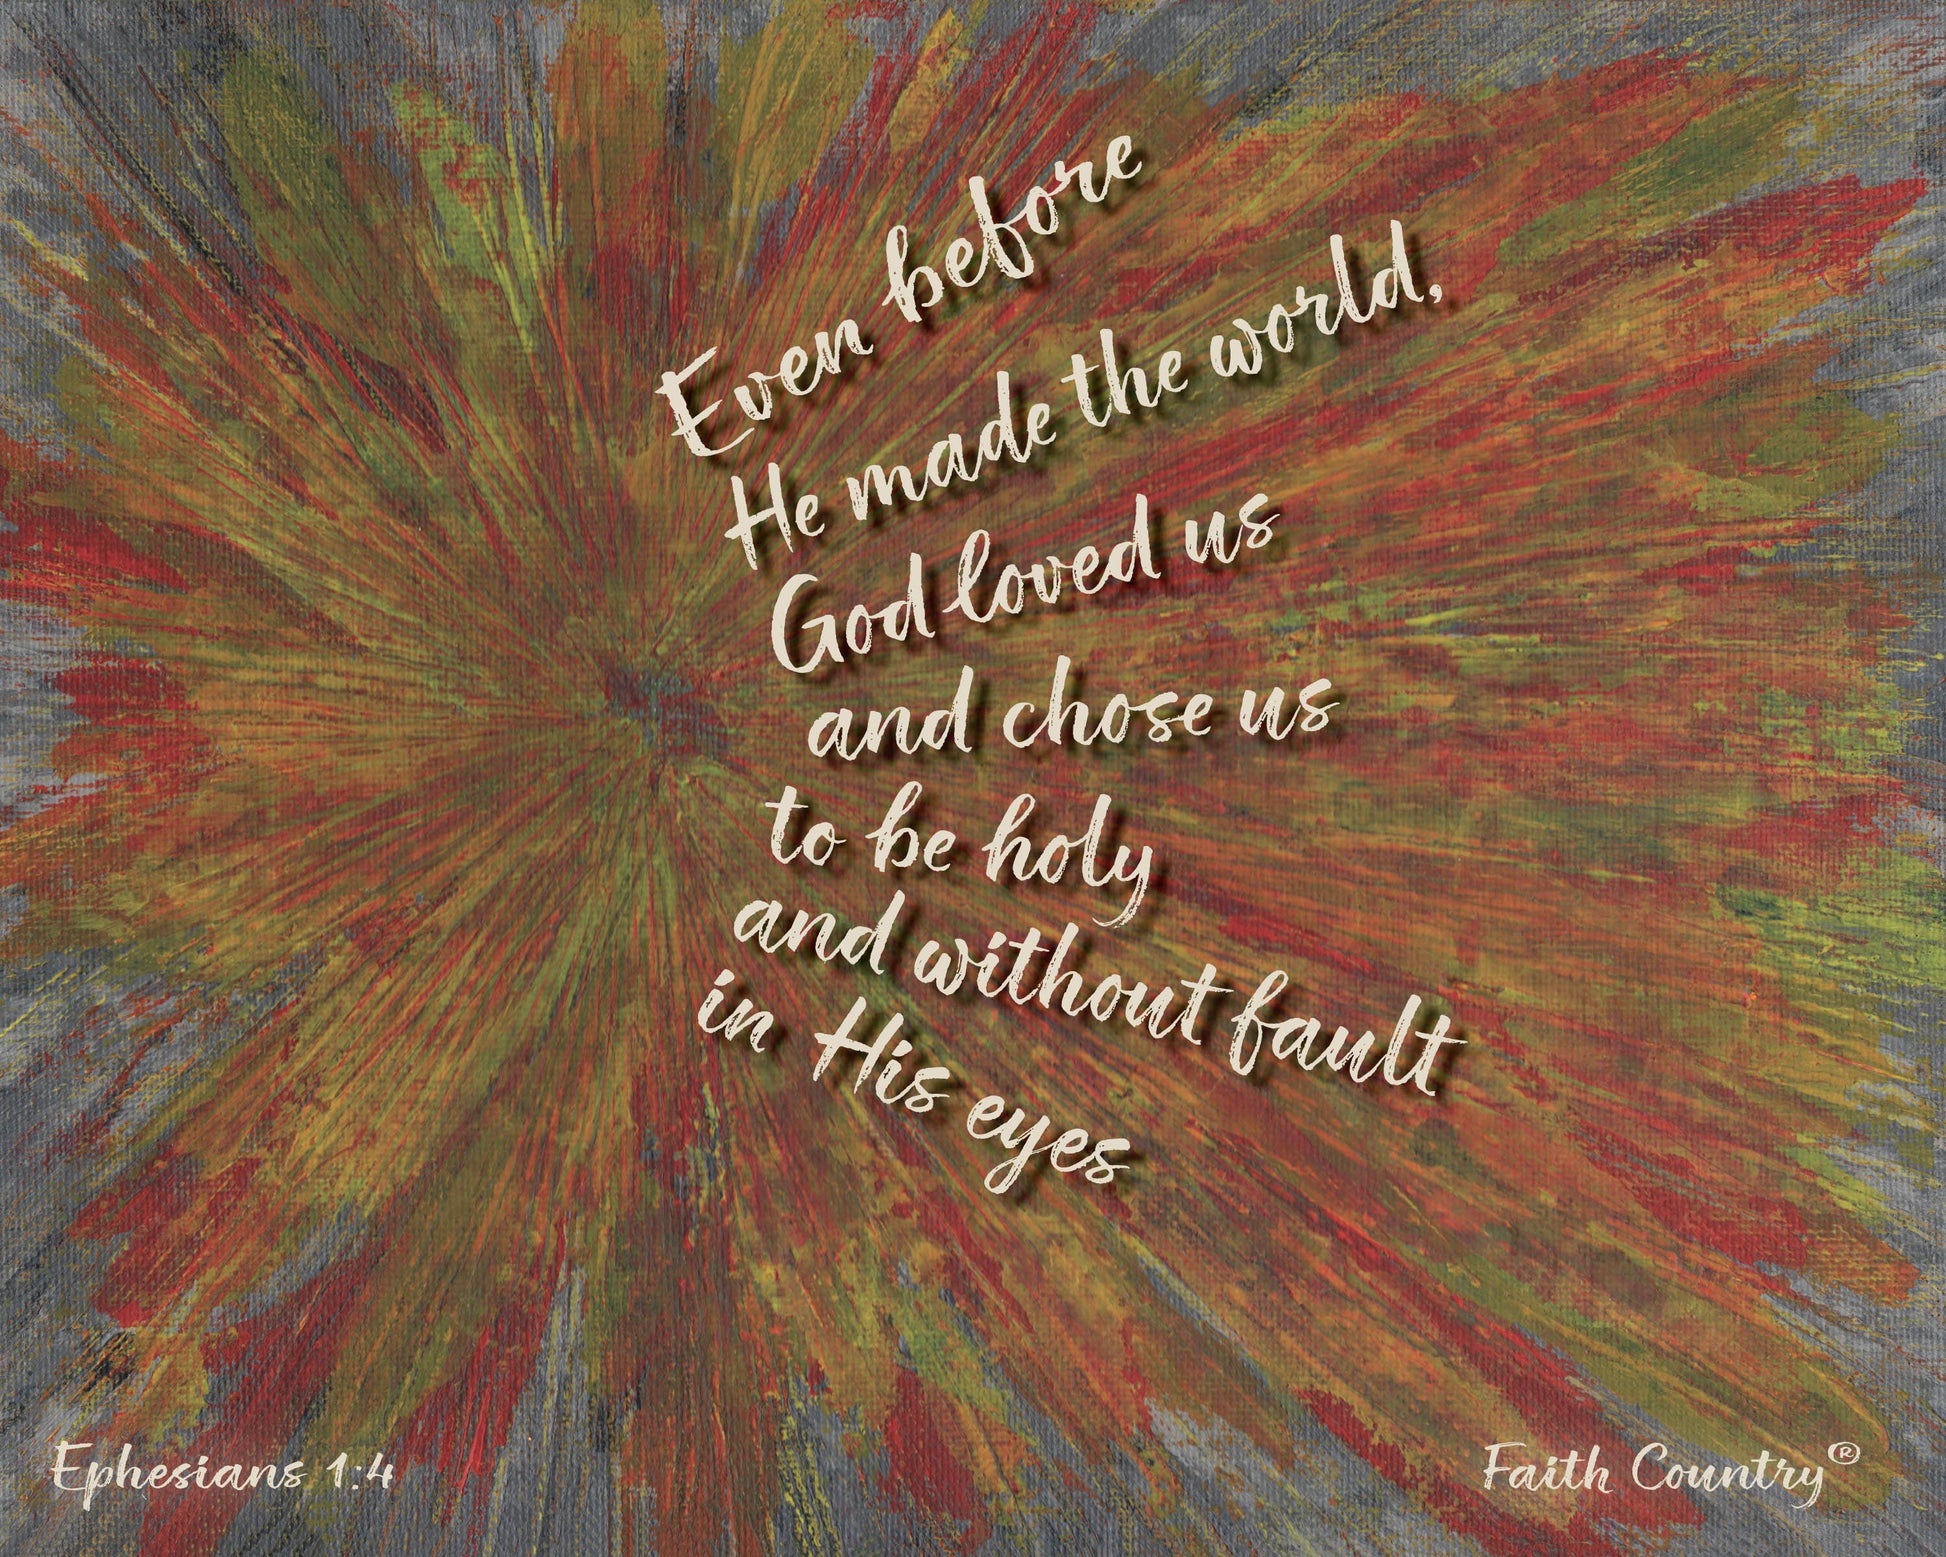 Even before
He made the world,
God loved us
and chose us
to be holy
and without fault
in His eyes
Ephesians 1:4
Faith Country®